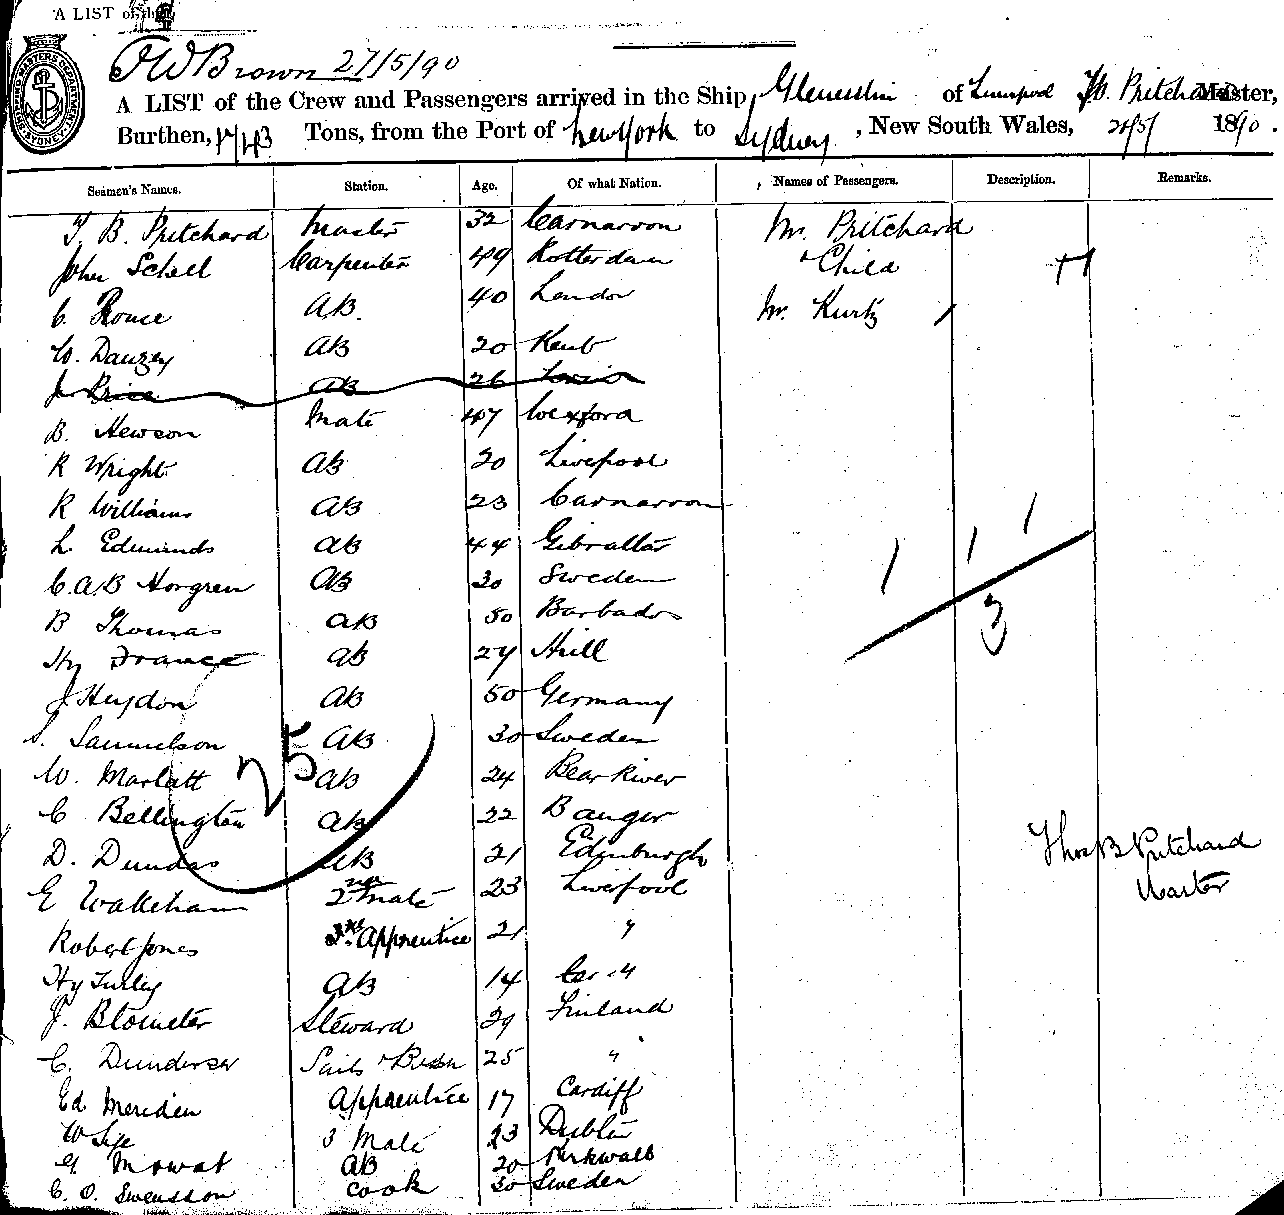 A LIST of the
F W Brown 27/5/90
A LIST of the Crew and Passengers arrived in the Ship, Glenesslin of Liverpool Th. Pritchard Master,
Burthen, 1743 Tons, from the Port of New York to Sydney, New South Wales, 26/5/ 1890.
Seamen's Names. Station. Age. Of what Nation. Names of Passengers. Description. Remarks.
T B. Pritchard Master 32 Carnarvon Mr. Pritchard
John Schell Carpenter 49 Rotterdam Child
C. Rouse AB. 40 London Mr. Kurtz
W. Dauzey AB 20 Kent
J. Price AB 26
B. Hewson Mate 47 Wexford
R Wright AB 20 Liverpool
R Williams AB 23 Carnarvon
L. Edmunds AB 44 Gibraltar
C. A B Horgren AB 30 Sweden
B Thomas AB 50 Barbados
Hy France AB 27 Hull
J Heydon AB 50 Germany
S. Samuelson AB 30 Sweden
W. Marlatt AB 24 Bear River
25
3
C Bellington AB 22 Bangor
D. Dundas AB 21 Edinburgh
Thos B Pritchard
Master
E Wakeham 2nd Mate 23 Liverpool
Robert Jones Apprentice 21 "
Hy Turley AB 14 "
J. Blometer Steward 29 Finland
C. Dunderser Sails & Bosn 25 "
Ed Meriden Apprentice 17 Cardiff
W Lye 3 Mate 23 Dublin
G Mowat AB 20 Kirkwall
C. O. Swensson Cook 30 Sweden